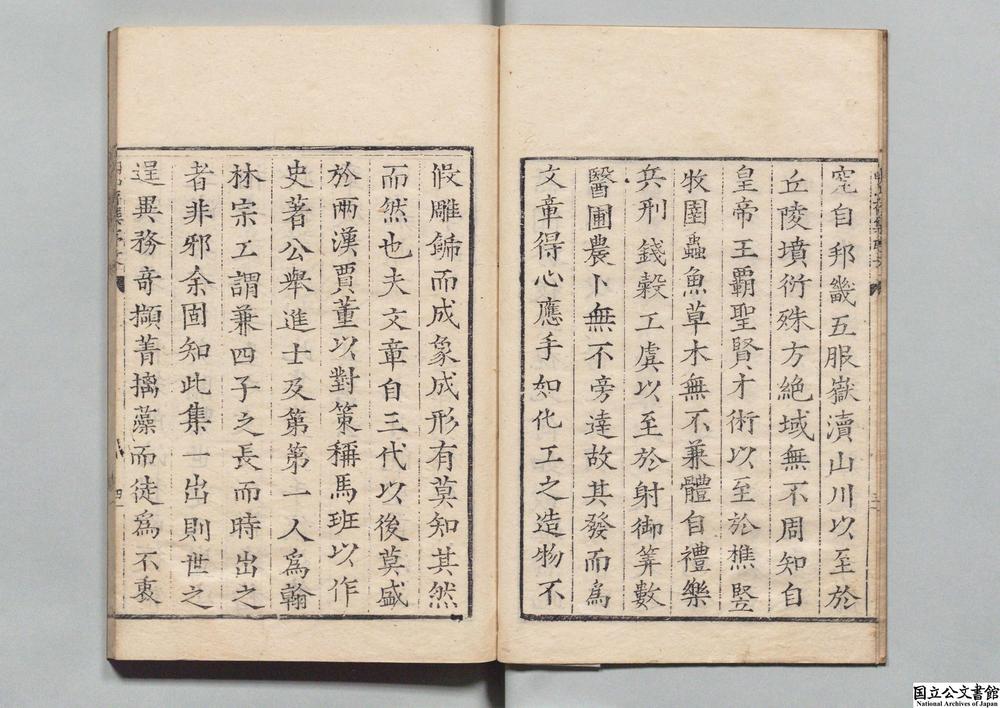 窕自邦畿五服嶽瀆山川以至於
丘陵墳衍殊方絶域無不周知自
皇帝王覇聖賢才術以至於樵豎
牧圉蟲魚草木無不兼體自禮樂
兵刑錢穀工虞以至於射御筭數
醫圃農卜無不旁達故其發而爲
文章得心應手如化工之造物不
三
假雕餙而成象成形有莫知其然
而然也夫文章自三代以後莫盛
於兩漢賈董以對策稱馬班以作
史著公舉進士及第第一人爲翰
林宗工謂兼四子之長而時出之
者非邪余固知此集一出則世之
逞異務奇擷菁摛藻而徒爲不衷
四
国立公文書館
National Archives of Japan